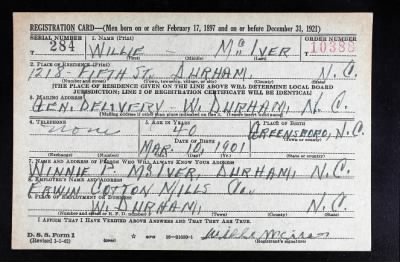 REGISTRATION CARD—(Men born on or after February 17, 1897 and on or before December 31, 1921)
SERIAL NUMBER 1. NAME (Print) ORDER NUMBER
T 284 WILLIE — McIVER T 10386
(First) (Middle) (Last)
2. PLACE OF RESIDENCE (Print)
1218- FIFTH ST. DURHAM, N.C.
(Number and street) (Town, township, village, or city) (County) (State)
[THE PLACE OF RESIDENCE GIVEN ON THE LINE ABOVE WILL DETERMINE LOCAL BOARD
JURISDICTION; LINE 2 OF REGISTRATION CERTIFICATE WILL BE IDENTICAL]
3. MAILING ADDRESS
GEN. DELIVERY - W. DURHAM, N.C.
[Mailing address if other than place indicated on line 2. If same insert word same]
4. TELEPHONE 5. AGE IN YEARS 6. PLACE OF BIRTH
none 40 GREENSBORO, N.C.
DATE OF BIRTH (Town or county)
MAR. 10, 1901
(Exchange) (Number) (Mo.) (Day) (Yr.) (State or country)
7. NAME AND ADDRESS OF PERSON WHO WILL ALWAYS KNOW YOUR ADDRESS
WINNIE P. McIVER, DURHAM, N.C.
8. EMPLOYER'S NAME AND ADDRESS
ERWIN COTTON MILLS Co.
9. PLACE OF EMPLOYMENT OR BUSINESS
W. DURHAM, N.C.
(Number and street or R. F. D. number) (Town) (County) (State)
I AFFIRM THAT I HAVE VERIFIED ABOVE ANSWERS AND THAT THEY ARE TRUE.
D. S. S. Form 1
(Revised 1-1-42) (over) 16—21630-1 Willie McIver
(Registrant's signature)